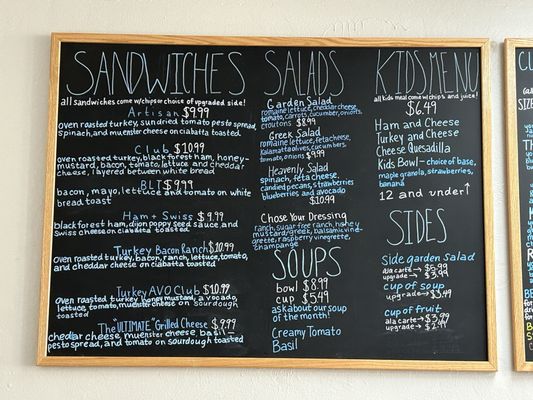 SANDWICHES
all sandwiches come w/chips or choice of upgraded side!
Artisan $9.99
oven roasted turkey, sun dried tomato pesto spread,
spinach, and muenster cheese on ciabatta toasted.
Club $10.99
oven roasted turkey, black forest ham, honey-
mustard, bacon, tomato, lettuce and cheddar
cheese, layered between white bread
BLT $9.99
bacon, mayo, lettuce and tomato on white
bread toast
Ham + Swiss $9.99
black forest ham, dijon poppy seed sauce, and
Swiss cheese on ciabatta toasted.
Turkey Bacon Ranch $10.99
oven roasted turkey, bacon, ranch, lettuce, tomato,
and cheddar cheese on ciabatta toasted
Turkey AVO Club $10.99
oven roasted turkey, honey mustard, avocado,
lettuce, tomato, muenster cheese on sourdough
toasted
The ULTIMATE "Grilled Cheese $9.99
cheddar cheese, muenster cheese, basil-
pesto spread, and tomato on sourdough toasted
SALADS
Garden Salad
romaine lettuce, cheddar cheese,
tomato, carrots, cucumber, onions,
croutons $8.99
Greek Salad
romaine lettuce, feta cheese,
Kalamata olives, cucumbers,
tomato, onions $9.99
Heavenly Salad
spinach, feta cheese,
candied pecans, strawberries
blueberries and avocado
$10.99
Chose Your Dressing
ranch, sugar free ranch, honey
mustard, greek, balsamic vine-
grette, raspberry vinegrette,
champange
SOUPS
bowl $8.99
cup $5.49
ask about our soup
of the month!
Creamy Tomato
Basil
KIDS MENU
all kids meal come w/chips and juice!
$6.49
Ham and Cheese
Turkey and Cheese
Cheese Quesadilla
Kids Bowl - choice of base,
maple granola, strawberries,
banana
12 and under↑
SIDES
side garden Salad
ala carte →
upgrade → $3.99
cup of soup
upgrade → $3.49
cup of fruit
ala carte → $3.99
upgrade → $2.99